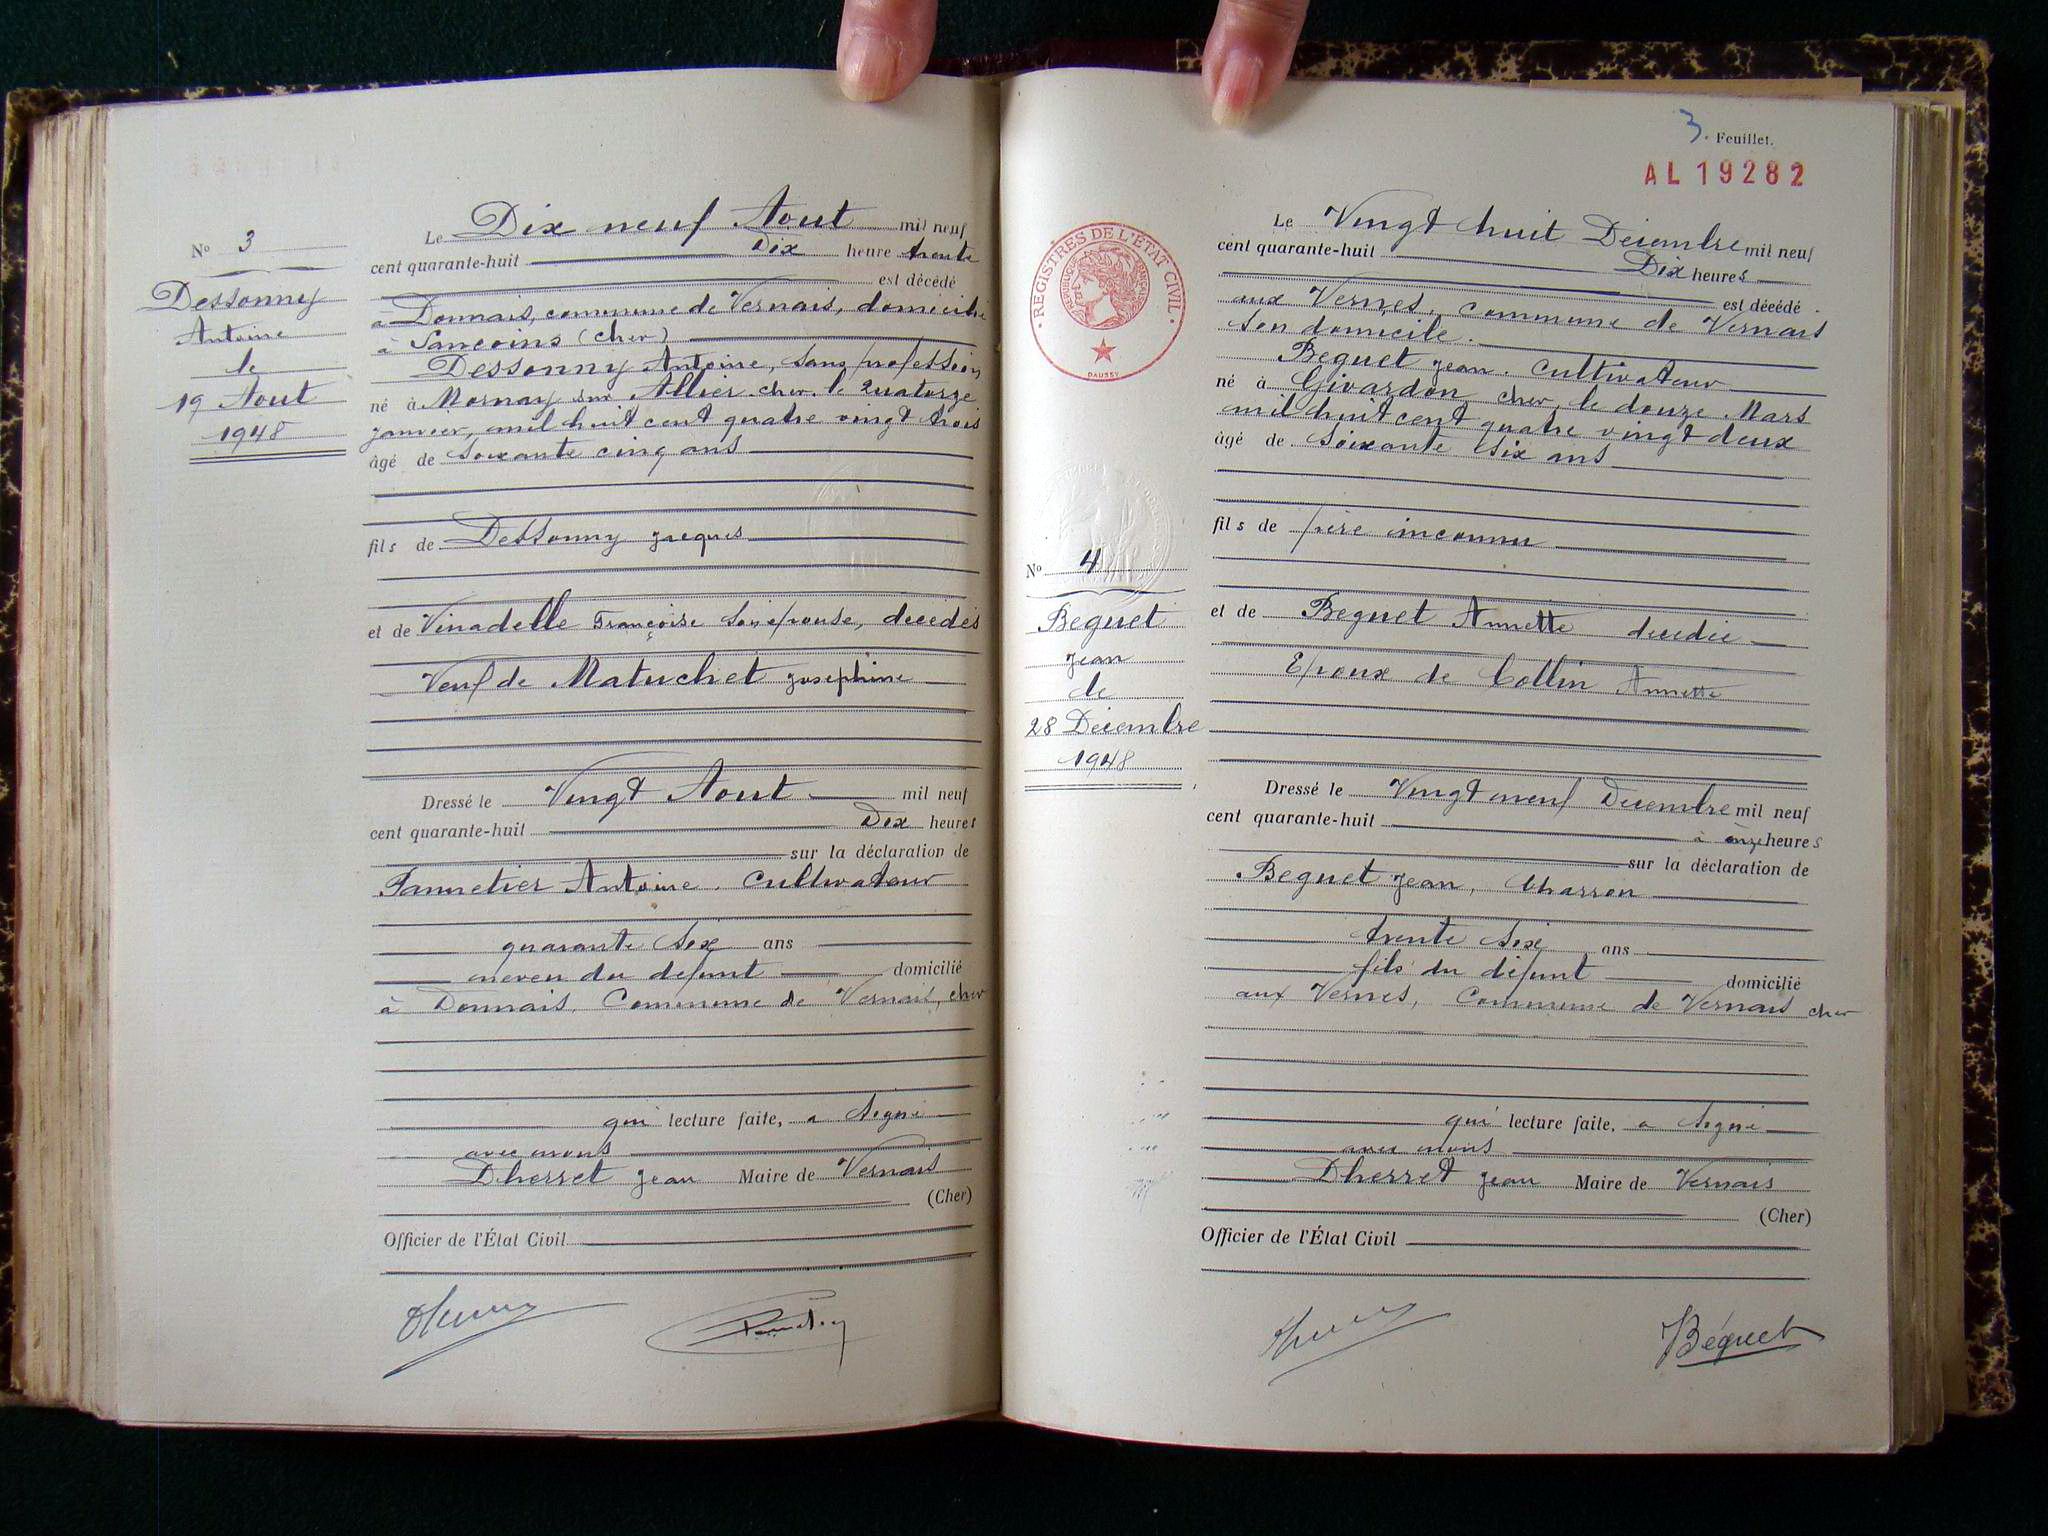 N° 3
Dessonny
Antoine
le
19 Aout
1948
Le Dix neuf Aout mil neuf
cent quarante-huit Dix heure trente
est décédé
à Donnais, commune de Vernais, domicilié
à Sancoins (cher)
Dessonny Antoine, sans profession
né à Mornay sur Allier cher. le quatorze
janvier, mil huit cent quatre vingt trois
âgé de soixante cinq ans
fils de Dessonny jacques
et de Vinadelle Françoise son épouse, décédés
Veuf de Matuchet josephine
Dressé le Vingt Aout mil neuf
cent quarante-huit Dix heures
sur la déclaration de
Antoine. Cultivateur
quarante six ans
neveu du défunt domicilié
à Donnais, Commune de Vernais, cher
qui lecture faite, a signé
avec nous
Dherret jean Maire de Vernais
(Cher)
Officier de l'État Civil
3. Feuillet.
AL 19282
REGISTRES DE L'ÉTAT CIVIL
RÉPUBLIQUE FRANÇAISE
DAUSSY
N° 4
Beguet
jean
le
28 Décembre
1948
Le Vingt huit Décembre mil neuf
cent quarante-huit Dix heures
est décédé
aux Vernes, commune de Vernais
son domicile.
Beguet jean. cultivateur
né à Givardon cher, le douze Mars
mil huit cent quatre vingt deux
âgé de soixante six ans
fils de père inconnu
et de Beguet Annette décédée
Epoux de Collin Annette
Dressé le Vingt neuf Décembre mil neuf
cent quarante-huit à onze heures
sur la déclaration de
Beguet jean, Charron
trente six ans
fils du défunt domicilié
aux Vernes, Commune de Vernais cher
qui lecture faite, a signé
avec nous
Dherret jean Maire de Vernais
(Cher)
Officier de l'État Civil
Béguet